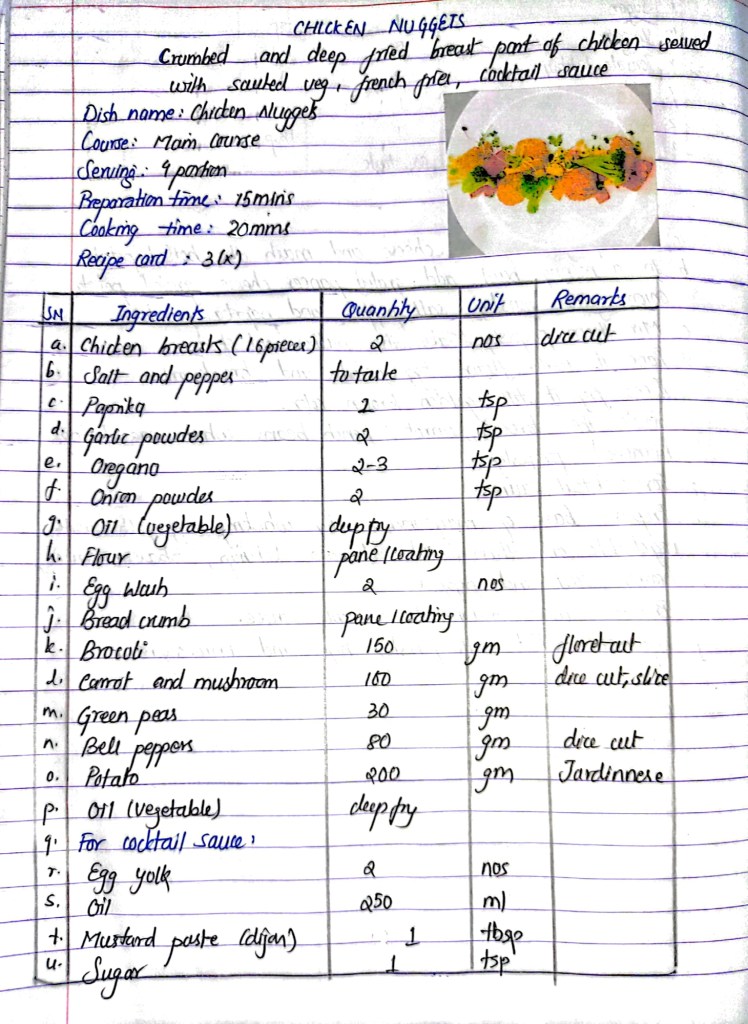 CHICKEN NUGGETS
Crumbed and deep fried breast part of chicken served
with sauted veg, french fries, cocktail sauce
Dish name: Chicken Nuggets
Course: Main Course
Serving: 4 portion
Preparation time: 15mins
Cooking time: 20mins
Recipe card: 3(x)
SN Ingredients Quantity Unit Remarks
a. Chicken breasts (16pieces) 2 nos dice cut
b. Salt and pepper to taste
c. Paprika 2 tsp
d. Garlic powder 2 tsp
e. Oregano 2-3 tsp
f. Onion powder 2 tsp
g. Oil (vegetable) deep fry
h. Flour pane/coating
i. Egg Wash 2 nos
j. Bread crumb pane/coating
k. Brocoli 150 gm floret cut
l. Carrot and mushroom 100 gm dice cut, slice
m. Green peas 30 gm
n. Bell peppers 80 gm dice cut
o. Potato 200 gm Jardinnese
p. Oil (vegetable) deep fry
q. For cocktail sauce:
r. Egg yolk 2 nos
s. Oil 250 ml
t. Mustard paste (dijon) 1 tbsp
u. Sugar 1 tsp